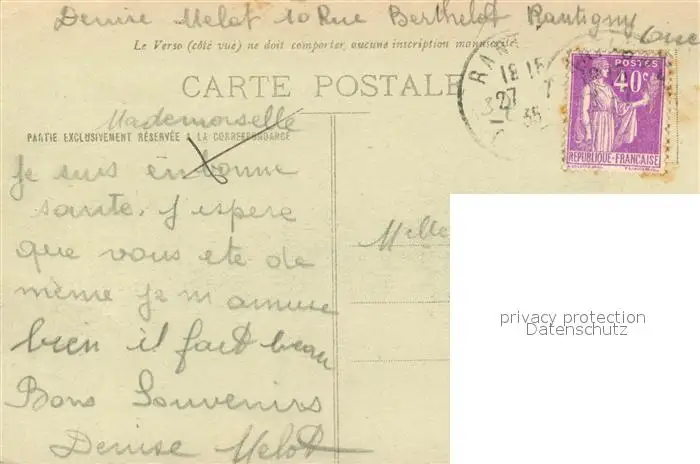 Denise Melot 10 Rue Berthelot Rantigny
Oise
Le Verso (côté vue) ne doit comporter, aucune inscription manuscrite.
CARTE POSTALE
RA
19 15
27 7
35
POSTES
40c
REPUBLIQUE-FRANÇAISE
Mademoiselle
PARTIE EXCLUSIVEMENT RÉSERVÉE A LA CORRESPONDANCE
Je suis en bonne
santé, j'espere
que vous ete de
même je m amuse
bien il fait beau
Bons Souvenirs
Denise Melot
Melle
privacy protection
Datenschutz